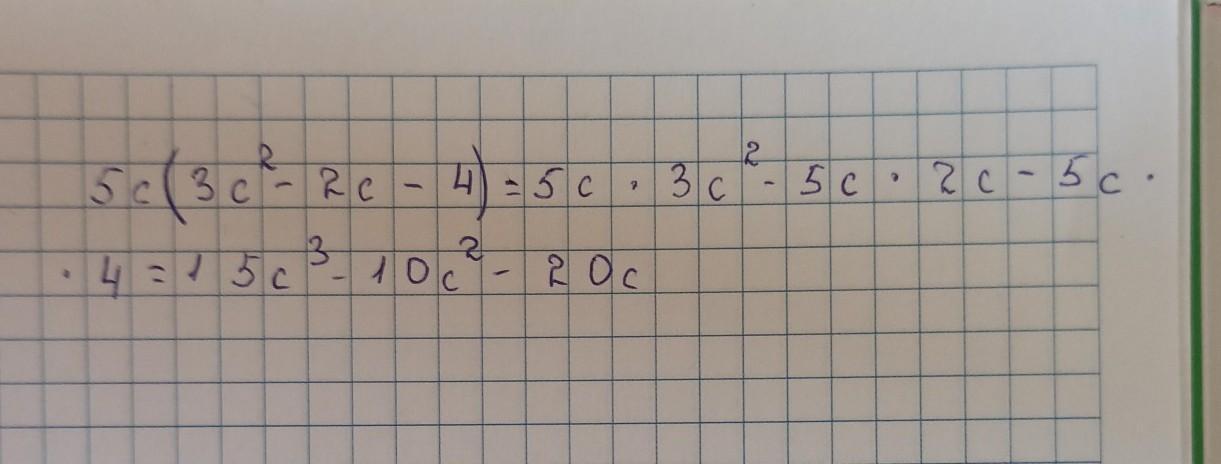 5c(3c² - 2c - 4) = 5c · 3c² - 5c · 2c - 5c ·
· 4 = 15c³ - 10c² - 20c